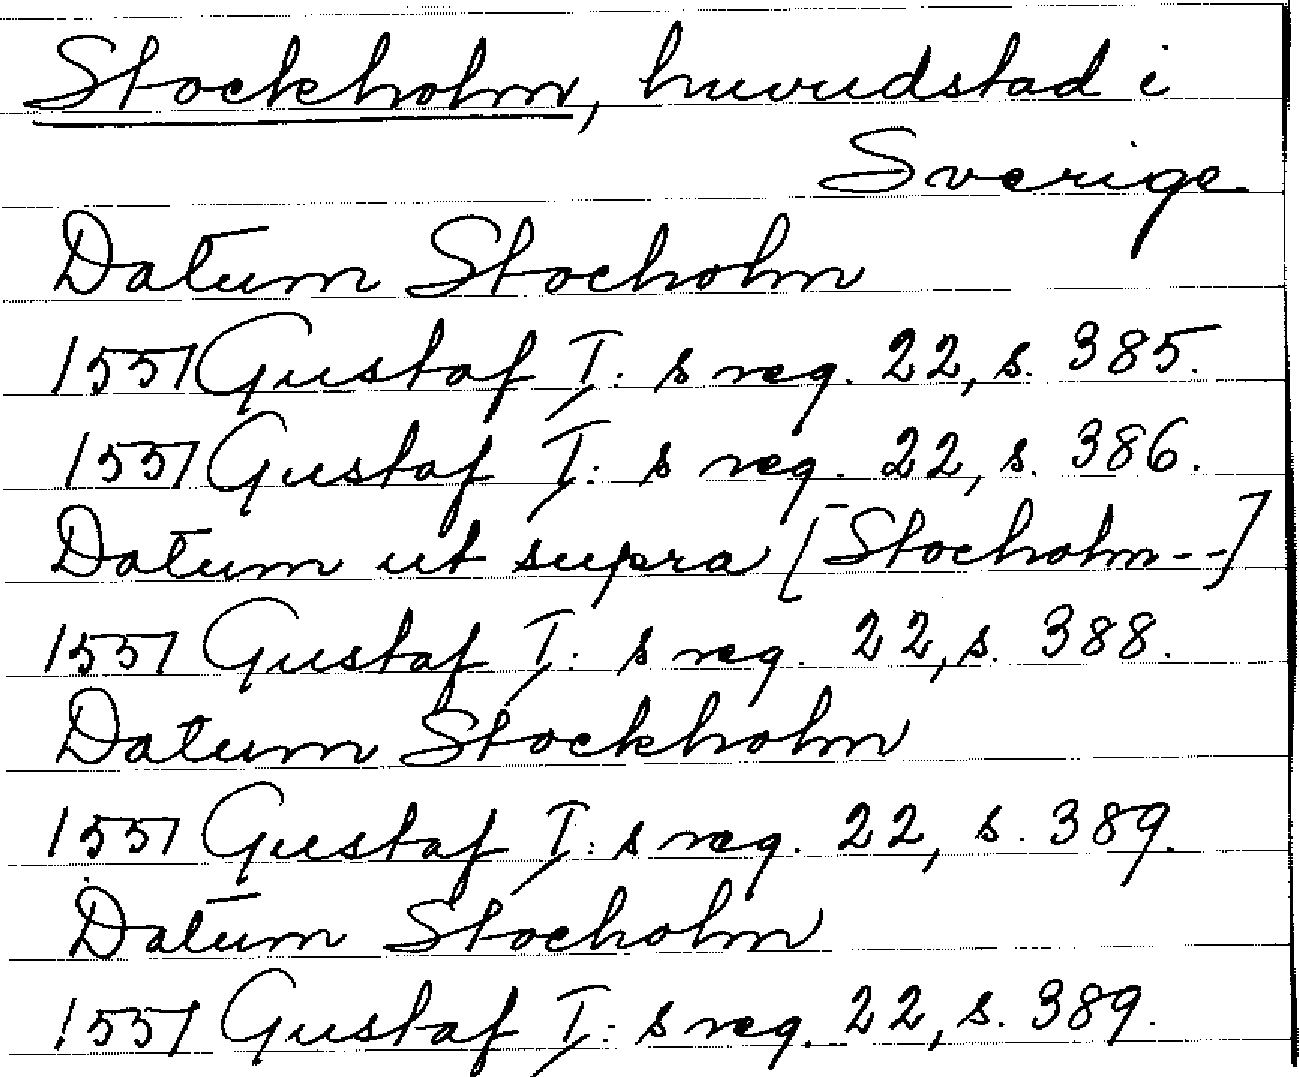 Stockholm, huvudstad i
Sverige
Datum Stocholm
1551 Gustaf I: s reg. 22, s. 385.
1551 Gustaf I: s reg. 22, s. 386.
Datum ut supra [Stocholm--]
1551 Gustaf I: s reg. 22, s. 388.
Datum Stockholm
1551 Gustaf I: s reg. 22, s. 389.
Datum Stocholm
1551 Gustaf I: s reg. 22, s. 389.